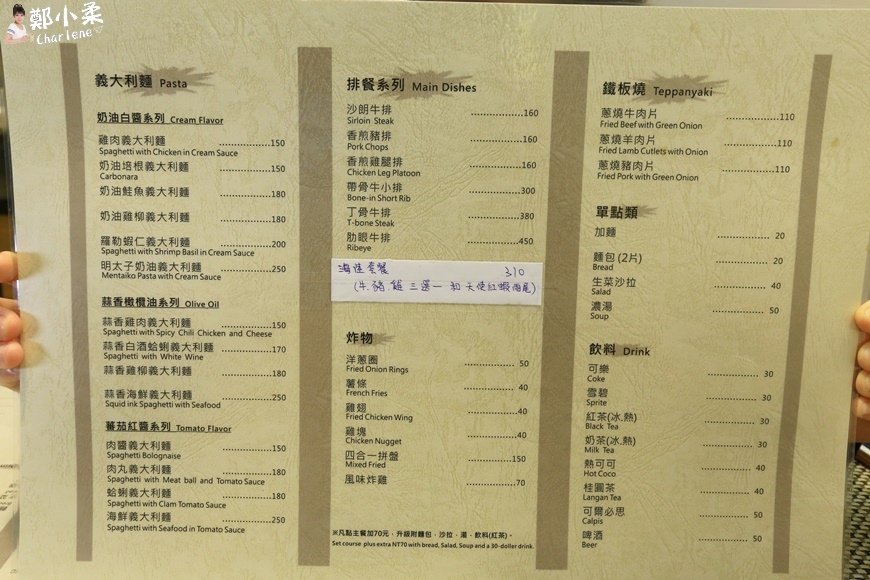 鄭小柔
Charlene
義大利麵 Pasta
奶油白醬系列 Cream Flavor
雞肉義大利麵 ..................150
Spaghetti with Chicken in Cream Sauce
奶油培根義大利麵 ..................150
Carbonara
奶油鮭魚義大利麵 ..................180
奶油雞柳義大利麵 ..................180
羅勒蝦仁義大利麵 ..................200
Spaghetti with Shrimp Basil in Cream Sauce
明太子奶油義大利麵 ..................250
Mentaiko Pasta with Cream Sauce
蒜香橄欖油系列 Olive Oil
蒜香雞肉義大利麵 ..................150
Spaghetti with Spicy Chili Chicken and Cheese
蒜香白酒蛤蜊義大利麵 ..................170
Spaghetti with White Wine
蒜香雞柳義大利麵 ..................180
蒜香海鮮義大利麵 ..................250
Squid ink Spaghetti with Seafood
蕃茄紅醬系列 Tomato Flavor
肉醬義大利麵 ..................150
Spaghetti Bolognaise
肉丸義大利麵 ..................180
Spaghetti with Meat ball and Tomato Sauce
蛤蜊義大利麵 ..................180
Spaghetti with Clam Tomato Sauce
海鮮義大利麵 ..................250
Spaghetti with Seafood in Tomato Sauce
排餐系列 Main Dishes
沙朗牛排 ..................160
Sirloin Steak
香煎豬排 ..................160
Pork Chops
香煎雞腿排 ..................160
Chicken Leg Platoon
帶骨牛小排 ..................300
Bone-in Short Rib
丁骨牛排 ..................380
T-bone Steak
肋眼牛排 ..................450
Ribeye
海陸套餐 310
(牛.豬.雞 三選一 和 天使紅蝦兩尾)
炸物
洋蔥圈 .................. 50
Fried Onion Rings
薯條 .................. 40
French Fries
雞翅 ..................40
Fried Chicken Wing
雞塊 ..................40
Chicken Nugget
四合一拼盤 ..................150
Mixed Fried
風味炸雞 ..................70
※凡點主餐加70元，升級附麵包，沙拉，湯，飲料(紅茶)。
Set course plus extra NT70 with bread, Salad, Soup and a 30-doller drink.
鐵板燒 Teppanyaki
蔥燒牛肉片 ..................110
Fried Beef with Green Onion
蔥燒羊肉片 ..................110
Fried Lamb Cutlets with Onion
蔥燒豬肉片 ..................110
Fried Pork with Green Onion
單點類
加麵 .................. 20
麵包 (2片) .................. 20
Bread
生菜沙拉 .................. 40
Salad
濃湯 .................. 50
Soup
飲料 Drink
可樂 .................. 30
Coke
雪碧 .................. 30
Sprite
紅茶(冰.熱) .................. 30
Black Tea
奶茶(冰.熱) .................. 30
Milk Tea
熱可可 .................. 40
Hot Coco
桂圓茶 .................. 40
Langan Tea
可爾必思 .................. 50
Calpis
啤酒 .................. 50
Beer